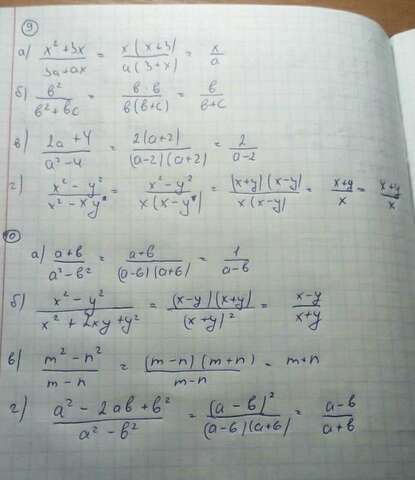 9
а) x²+3x / 3a+ax = x(x+3) / a(3+x) = x / a
б) b² / b²+bc = b·b / b(b+c) = b / b+c
в) 2a+4 / a²-4 = 2(a+2) / (a-2)(a+2) = 2 / a-2
г) x²-y² / x²-xy = x²-y² / x(x-y) = (x+y)(x-y) / x(x-y) = x+y / x = x+y / x
10
а) a+b / a²-b² = a+b / (a-b)(a+b) = 1 / a-b
б) x²-y² / x²+2xy+y² = (x-y)(x+y) / (x+y)² = x-y / x+y
в) m²-n² / m-n = (m-n)(m+n) / m-n = m+n
г) a²-2ab+b² / a²-b² = (a-b)² / (a-b)(a+b) = a-b / a+b